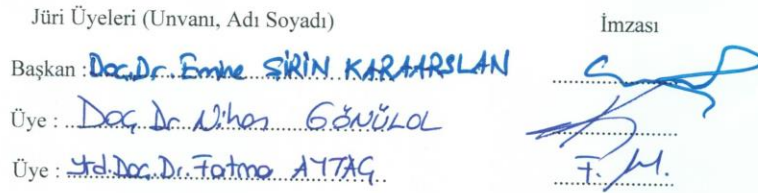 Jüri Üyeleri (Unvanı, Adı Soyadı) İmzası
Başkan : Doç.Dr. Emine ŞİRİN KARAARSLAN
Üye : Doç Dr Nihan GÖNÜLOL
Üye : Yrd.Doç.Dr. Fatma AYTAÇ F.